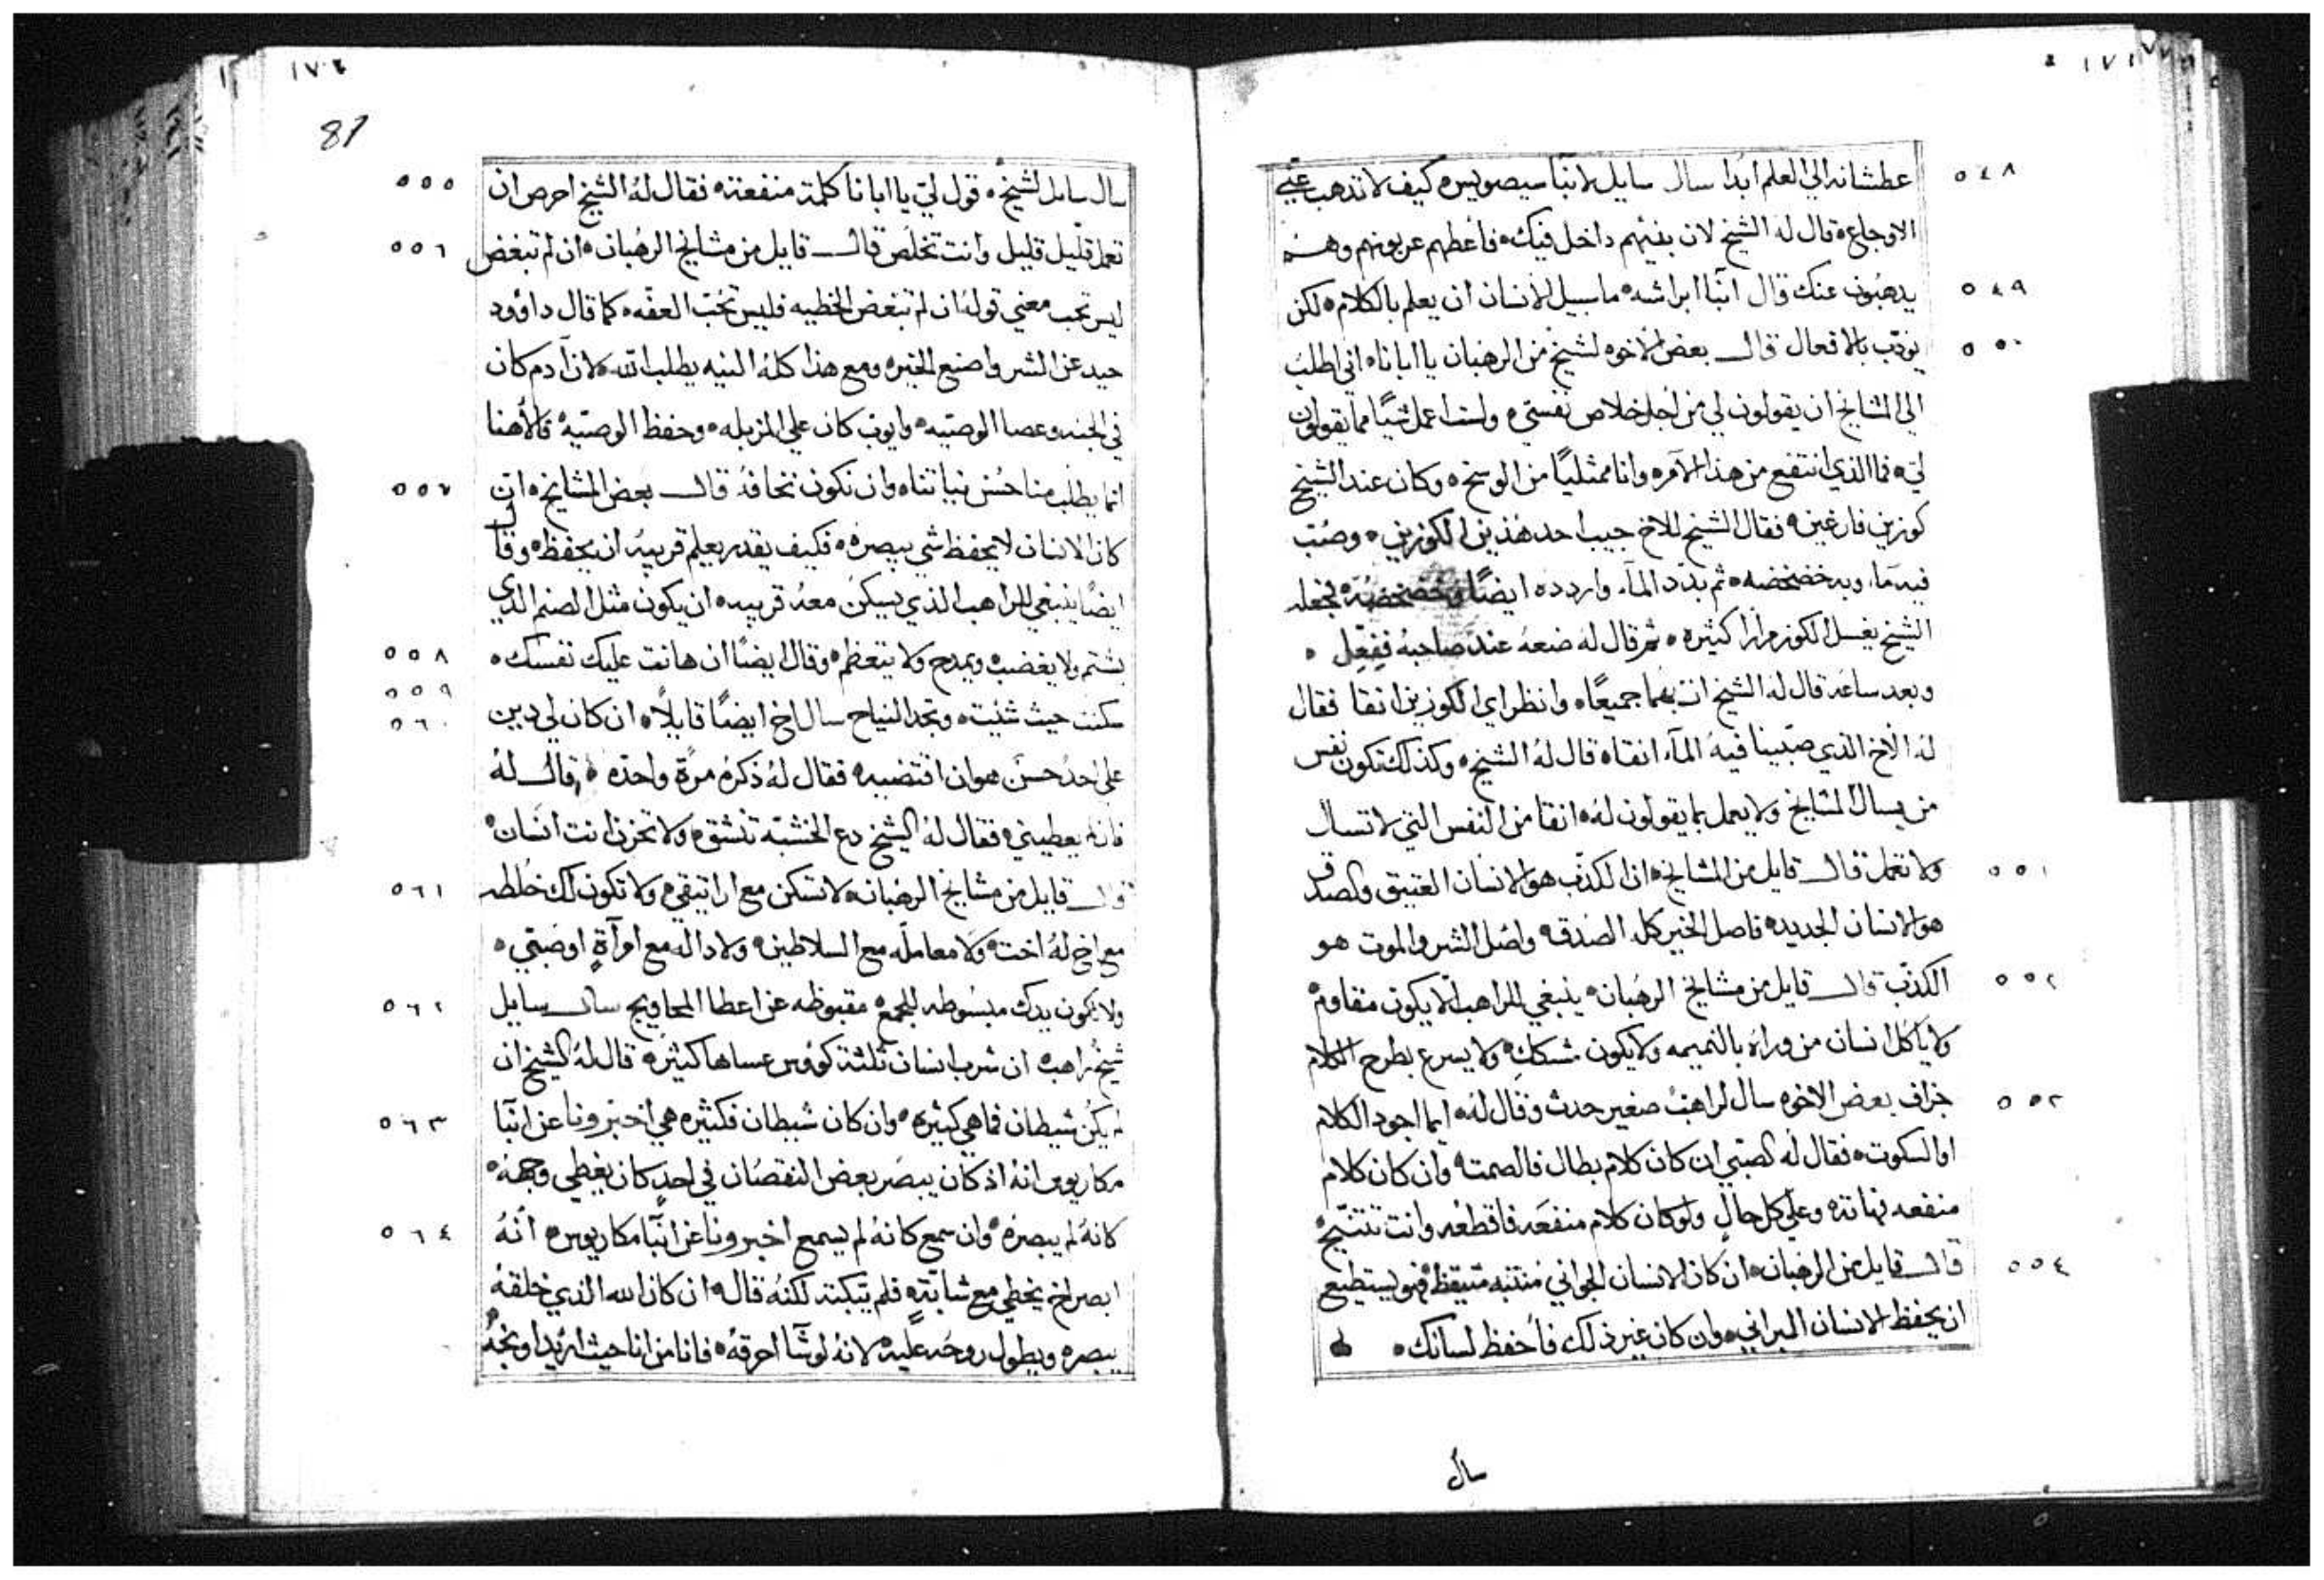 ١٧١
٥٤٨ عطشانه الي العلم ابدًا سال سايل لانبّا سيصويس ٥ كيف لا تذهب عني
الاوجاع ٥ قال له الشيخ لان بغيتهم داخل فيك ٥ فاعطهم عربونهم وهم
٥٤٩ يذهبون عنك قال انبّا ابراشه ٥ ما سبيل الانسان ان يعلم بالكلام ٥ لكن
٥٥٠ يودّب بالافعال قال بعض الاخوه لشيخ من الرهبان يا ابانا ٥ اني اطلب
الي المشايخ ان يقولون لي من اجل خلاص نفسي ٥ ولست اعمل شيًا مما يقولون
لي ٥ فما الذي انتفع من هذا الامر ٥ وانا ممثليًا من الوسخ ٥ وكان عند الشيخ
كوزين فارغين ٥ فقال الشيخ للاخ جيب احد هذين الكوزين ٥ وصُبّ
فيه مآء وبه خضخضه ٥ ثم بدّد المآء واردده ايضًا وخضخضه ٥ فجعله
الشيخ يغسل الكوز مرارًا كثيره ٥ ثم قال له ضعهُ عند صاحبهُ ففعل ٥
وبعد ساعه قال له الشيخ ات بهما جميعًا ٥ وانظر اي الكوزين انقا فقال
لهُ الاخ الذي صبّينا فيهُ المآء انقا ٥ قال لهُ الشيخ ٥ وكذلك تكون نفس
من يسال المشايخ ولا يعمل بما يقولون لهُ ٥ انقا من النفس التي لا تسال
٥٥١ ولا تعمل قال قايل من المشايخ ٥ ان الكذب هو الانسان العتيق والصدق
هو الانسان الجديد ٥ فاصل الخير كله الصدق ٥ واصل الشر والموت هو
٥٥٢ الكذب قال قايل من مشايخ الرهبان ٥ ينبغي للراهب الا يكون مقاوم ٥
ولا ياكل انسان من وراه بالنميمه ولا يكون شكاك ٥ ولا يسرع بطرح الكلام
٥٥٣ جزاف بعض الاخوه سال لراهب صغير حدث وقال لهُ ٥ ايما اجود الكلام
او السكوت ٥ فقال لهُ الصبي ان كان كلام بطال فالصمت ٥ وان كان كلام
منفعه فهاته ٥ وعلي كل حالٍ ولو كان كلام منفعه فاقطعه وانت تتنيّح ٥
٥٥٤ قال قايل من الرهبان ٥ ان كان الانسان الجواني منتبه متيقظ ٥ فهو يستطيع
ان يحفظ الانسان البراني ٥ وان كان غير ذلك فاحفظ لسانك ٥
سال
87
٥٥٥ سال سايل لشيخ ٥ قول لي يا ابانا كلمة منفعة ٥ فقال لهُ الشيخ احرص ان
٥٥٦ تعمل قليل قليل وانت تخلص قال قايل من مشايخ الرهبان ٥ ان لم تبغض
ليس تحب معني قولهُ ان لم تبغض الخطيه فليس تحُبّ العفّه ٥ كما قال داوود
حيد عن الشر واصنع الخير ٥ ومع هذا كلهُ النيه يطلب الله ٥ لان ادم كان
في الجنه وعصا الوصيه ٥ وايوب كان علي المزبله ٥ وحفظ الوصيه ٥ فالاهنا
٥٥٧ انما يطلب منا حُسن نياتنا ٥ وان نكون نخافهُ قال بعض المشايخ ٥ ان
كان الانسان لا يحفظ شي يبصره ٥ فكيف يقدر يعلم قريبهُ ان يحفظ ٥ وقال
ايضًا ينبغي للراهب الذي يسكن معهُ قريبه ٥ ان يكون مثل الصنم الذي
٥٥٨ يشتم ولا يغضب ٥ ويمدح ولا يتعظم ٥ وقال ايضًا ان هانت عليك نفسك ٥
٥٥٩
٥٦٠ سكنت حيث شئت ٥ وتجد النياح سال اخ ايضًا قايلًا ٥ ان كان لي دين
علي احد حسن هو ان اقتضيه ٥ فقال لهُ ذكرهُ مرّة واحده ٥ قال لهُ
فان لم يعطيني ٥ فقال لهُ الشيخ دع الخشبه تنشق ٥ ولا تحزن انت انسان ٥
٥٦١ قال قايل من مشايخ الرهبان ٥ لا تسكن مع اراتيقي ٥ ولا تكون لك خُلطه
مع اخ لهُ اخت ٥ ولا معامله مع السلاطين ٥ ولا داله مع امراةٍ او صبي ٥
٥٦٢ ولا تكون يدك مبسُوطه للجمع ٥ مقبوظه عن اعطا المحاويج سال سايل
شيخ راهب ٥ ان شرب انسان ثلثة كووس عساها كثيره ٥ قال لهُ الشيخ ان
٥٦٣ لم يكن شيطان فما هي كثيره ٥ وان كان شيطان فكثيره هي اخبرونا عن انبّا
مكاريوس انهُ اذ كان يبصر بعض النقصان في احدٍ كان يغطي وجههُ ٥
٥٦٤ كانهُ لم يبصره ٥ وان سمع كانهُ لم يسمع اخبرونا عن انبّا مكاريوس ٥ انّهُ
ابصر اخ يخطي مع شابّه ٥ فلم يبكته لكنهُ قال ٥ ان كان الله الذي خلقهُ
يبصره ويطول روحَه عليه ٥ لانهُ لو شآ احرقهُ ٥ فانا من انا حيث اريد اوبخهُ